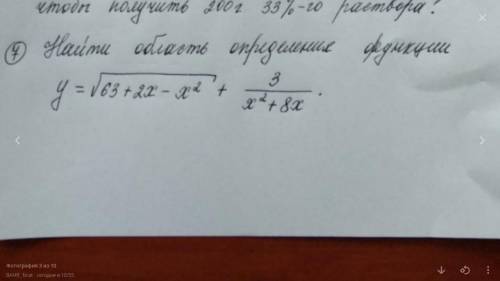 чтобы получить 200г 33%-го раствора?
④ Найти область определения функции
y = √63 + 2x - x² + 3 / x² + 8x .
Фотография 3 из 10